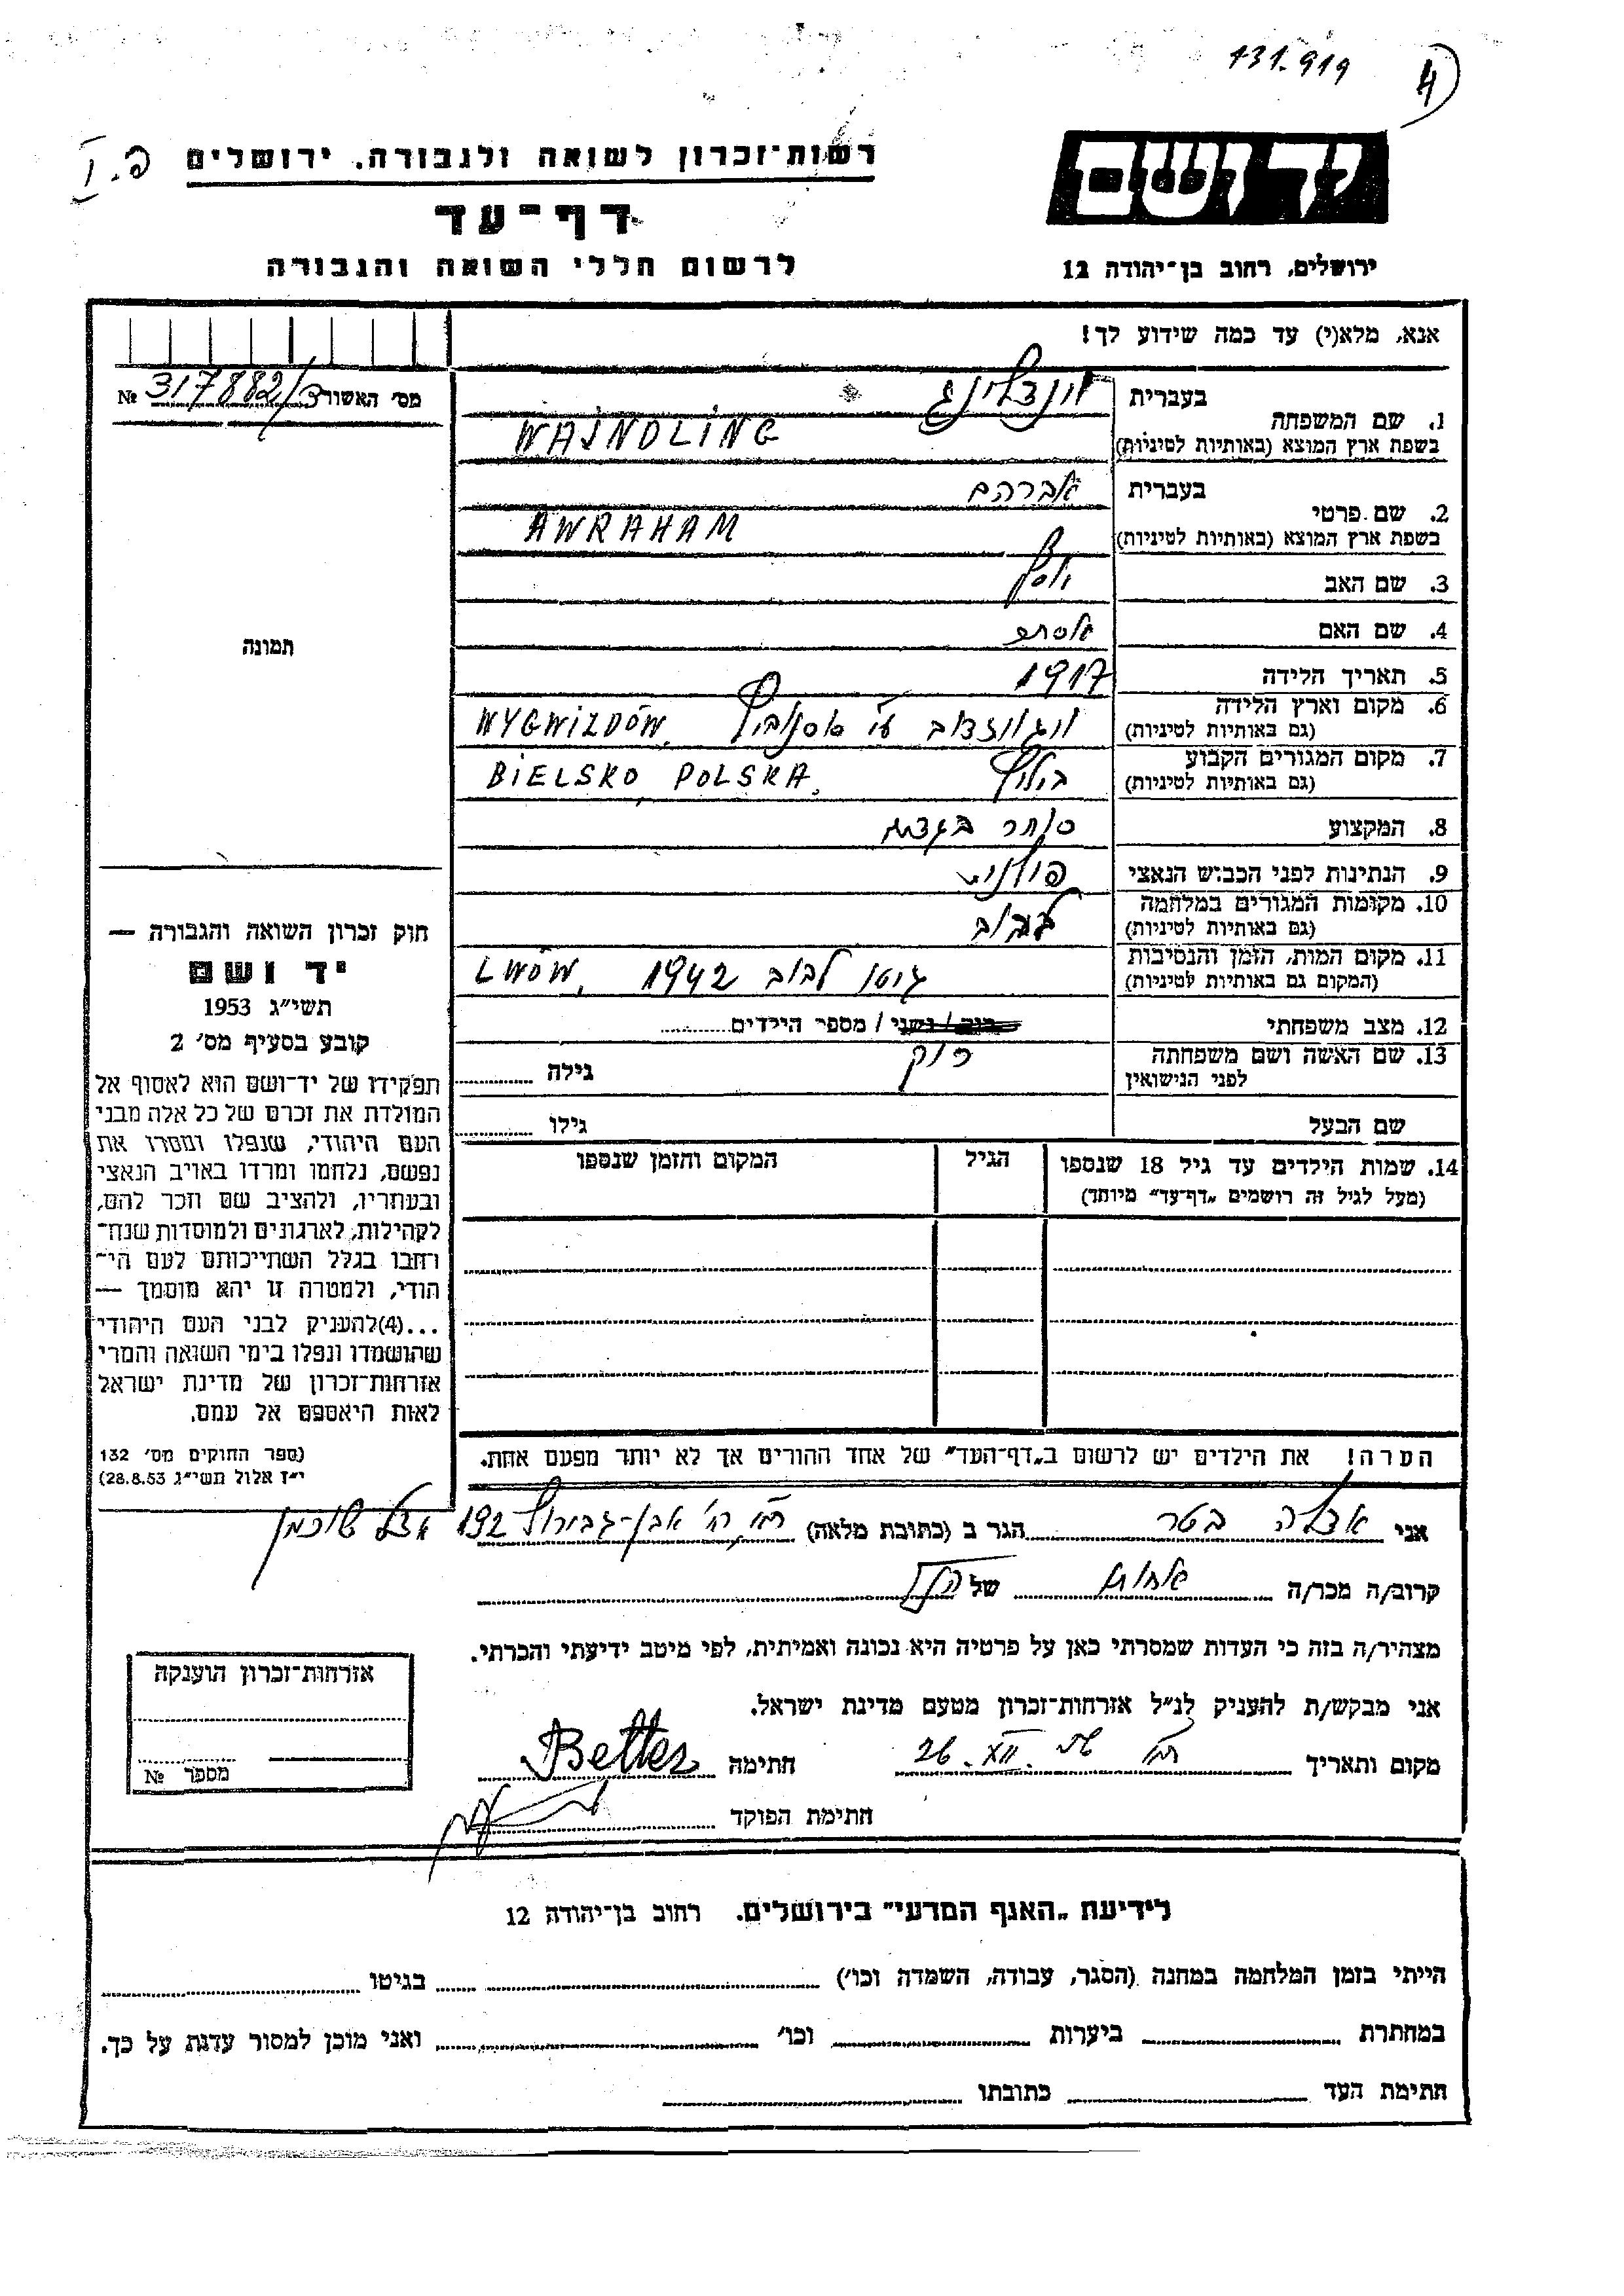 131.919
4
יד ושם
ירושלים, רחוב בן־יהודה 12
רשות־זכרון לשואה ולגבורה, ירושלים
דף־עד
לרשום חללי השואה והגבורה
אנא, מלא(י) עד כמה שידוע לך!
מס׳ האשור 317882/3 №
1. שם המשפחה
בעברית
בשפת ארץ המוצא (באותיות לטיניות)
WAJNDLING
2. שם פרטי
בעברית אברהם
בשפת ארץ המוצא (באותיות לטיניות)
AWRAHAM
3. שם האב יוסף
4. שם האם אסתר
5. תאריך הלידה 1917
6. מקום וארץ הלידה
(גם באותיות לטיניות)
WYGWIZDÓW
7. מקום המגורים הקבוע
(גם באותיות לטיניות)
BIELSKO POLSKA
8. המקצוע סוחר בגדים
9. הנתינות לפני הכבוש הנאצי פולנית
10. מקומות המגורים במלחמה
(גם באותיות לטיניות)
לבוב
11. מקום המות, הזמן והנסיבות
(המקום גם באותיות לטיניות)
גיטו לבוב 1942 LWÓW,
12. מצב משפחתי
רוק / נשוי / מספר הילדים
13. שם האשה ושם משפחתה
לפני הנישואין
רוק
גילה
שם הבעל גילו
14. שמות הילדים עד גיל 18 שנספו
(מעל לגיל זה רושמים „דף־עד״ מיוחד)
הגיל
המקום והזמן שנספו
תמונה
חוק זכרון השואה והגבורה —
יד ושם
תשי״ג 1953
קובע בסעיף מס׳ 2
תפקידו של יד־ושם הוא לאסוף אל
המולדת את זכרם של כל אלה מבני
העם היהודי, שנפלו ומסרו את
נפשם, נלחמו ומרדו באויב הנאצי
ובעוזריו, ולהציב שם וזכר להם,
לקהילות, לארגונים ולמוסדות שנח־
רחבו בגלל השתייכותם לעם הי־
הודי, ולמטרה זו יהא מוסמך —
...(4)להעניק לבני העם היהודי
שהושמדו ונפלו בימי השואה והמרי
אזרחות־זכרון של מדינת ישראל
לאות היאספם אל עמם.
(ספר החוקים מס׳ 132
י״ז אלול תשי״ג 28.8.53)
הערה! את הילדים יש לרשום ב„דף־העד״ של אחד ההורים אך לא יותר מפעם אחת.
אני בטר הגר ב (כתובת מלאה) אבן־גבירול 192 אצל
קרוב/ה מכר/ה אחות של הנ״ל
מצהיר/ה בזה כי העדות שמסרתי כאן על פרטיה היא נכונה ואמיתית, לפי מיטב ידיעתי והכרתי.
אני מבקש/ת להעניק לנ״ל אזרחות־זכרון מטעם מדינת ישראל.
מקום ותאריך 26. XII. חתימה Better
חתימת הפוקד
אזרחות־זכרון הוענקה
מספר №
לידיעת „האגף המדעי״ בירושלים, רחוב בן־יהודה 12
הייתי בזמן המלחמה במחנה (הסגר, עבודה, השמדה וכו׳) בגיטו
במחתרת ביערות וכו׳ ואני מוכן למסור עדות על כך.
חתימת העד כתובתו